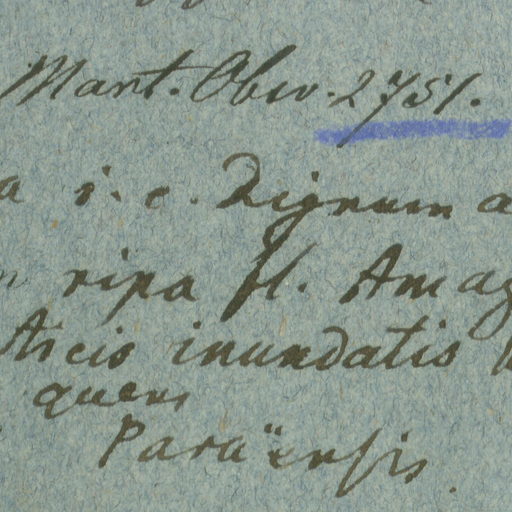 Mart. Obsv. 2751.
a i. e. Lignum a
ripa fl. Amaz
Ascis inundatis
quens
Paraënsis.